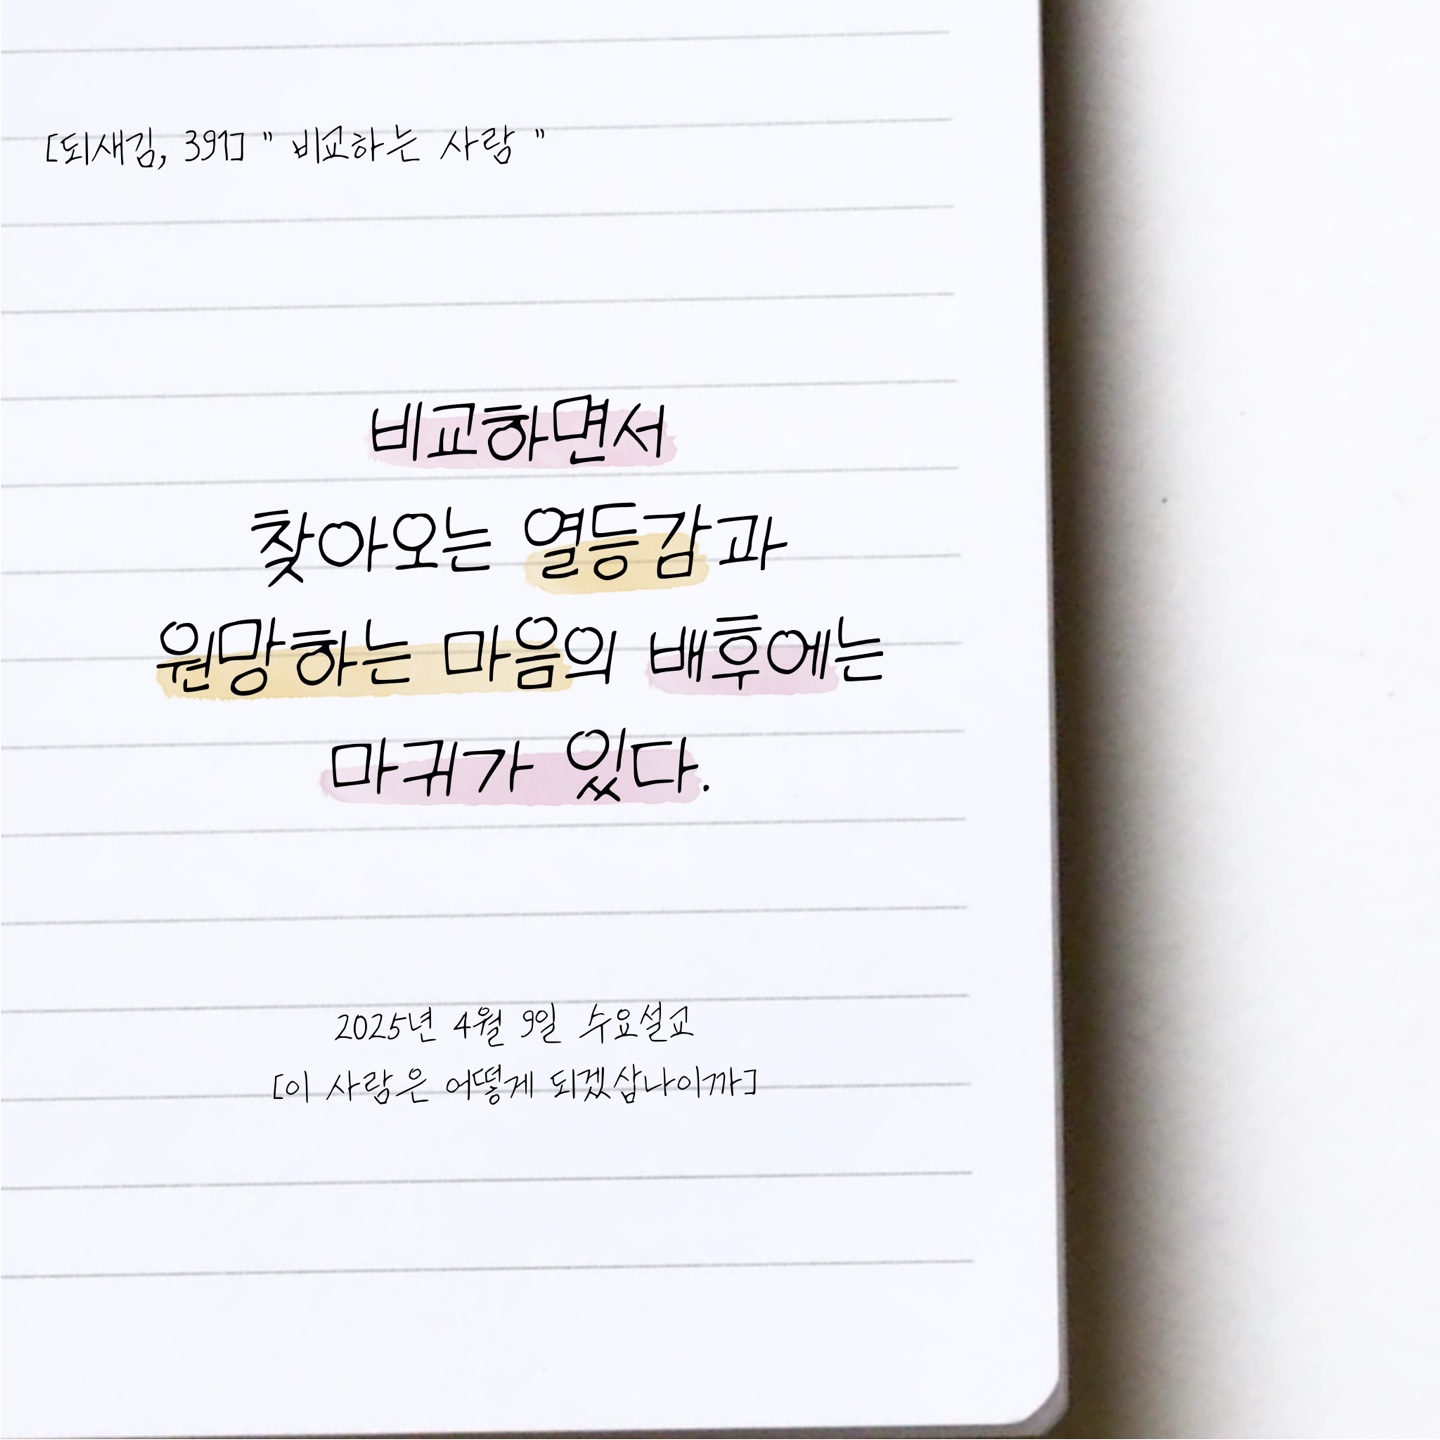 [되새김, 391] " 비교하는 사람 "
비교하면서
찾아오는 열등감과
원망하는 마음의 배후에는
마귀가 있다.
2025년 4월 9일 수요설교
[이 사람은 어떻게 되겠삽나이까]